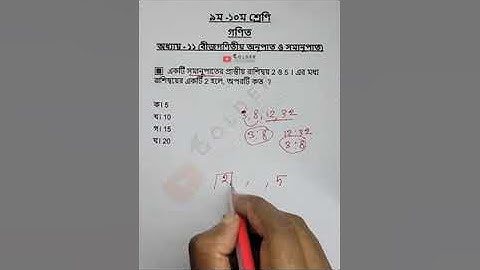 ৯ম -১০ম শ্রেণি
গণিত
অধ্যায় - ১১ (বীজগণিতীয় অনুপাত ও সমানুপাত)
GOLDEN
একটি সমানুপাতের প্রান্তীয় রাশিদ্বয় 2 ও 5 । এর মধ্য
রাশিদ্বয়ের একটি 2 হলে, অপরটি কত ?
ক। 5
খ। 10
গ। 15
ঘ। 20
3, 8, 12, 32
3:8
12:32
3:8
2 , , 5